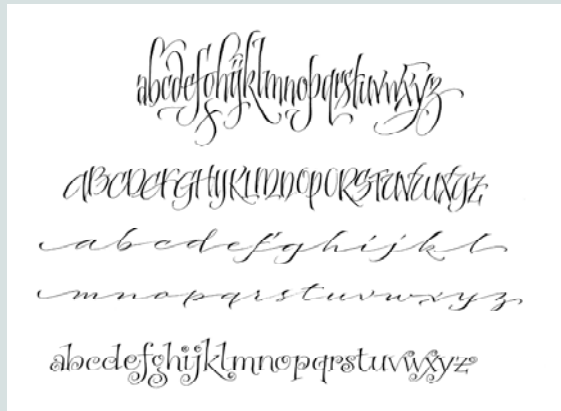 abcdefghijklmnopqrstuvwxyz
ABCDEFGHIJKLMNOPQRSTUVWXYZ
abcdefghijkl
mnopqrstuvwxyz
abcdefghijklmnopqrstuvwxyz